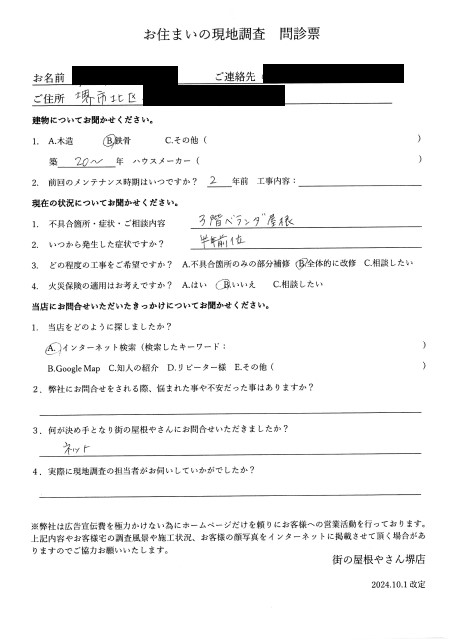 お住まいの現地調査 問診票
お名前 ご連絡先（
ご住所 堺市北区
建物についてお聞かせください。
1. A.木造 B.鉄骨 C.その他（ ）
築 20～ 年 ハウスメーカー（ ）
2. 前回のメンテナンス時期はいつですか？ 2 年前 工事内容：
現在の状況についてお聞かせください。
1. 不具合箇所・症状・ご相談内容 3階ベランダ屋根
2. いつから発生した症状ですか？ 半年前位
3. どの程度の工事をご希望ですか？ A.不具合箇所のみの部分補修 B.全体的に改修 C.相談したい
4. 火災保険の適用はお考えですか？ A.はい B.いいえ C.相談したい
当店にお問合せいただいたきっかけについてお聞かせください。
1. 当店をどのように探しましたか？
A.インターネット検索（検索したキーワード： ）
B.Google Map C.知人の紹介 D.リピーター様 E.その他（ ）
２．弊社にお問合せをされる際、悩まれた事や不安だった事はありますか？
３．何が決め手となり街の屋根やさんにお問合せいただきましたか？
ネット
４．実際に現地調査の担当者がお伺いしていかがでしたか？
※弊社は広告宣伝費を極力かけない為にホームページだけを頼りにお客様への営業活動を行っております。
上記内容やお客様宅の調査風景や施工状況、お客様の顔写真をインターネットに掲載させて頂く場合があ
りますのでご協力お願いいたします。
街の屋根やさん堺店
2024.10.1 改定